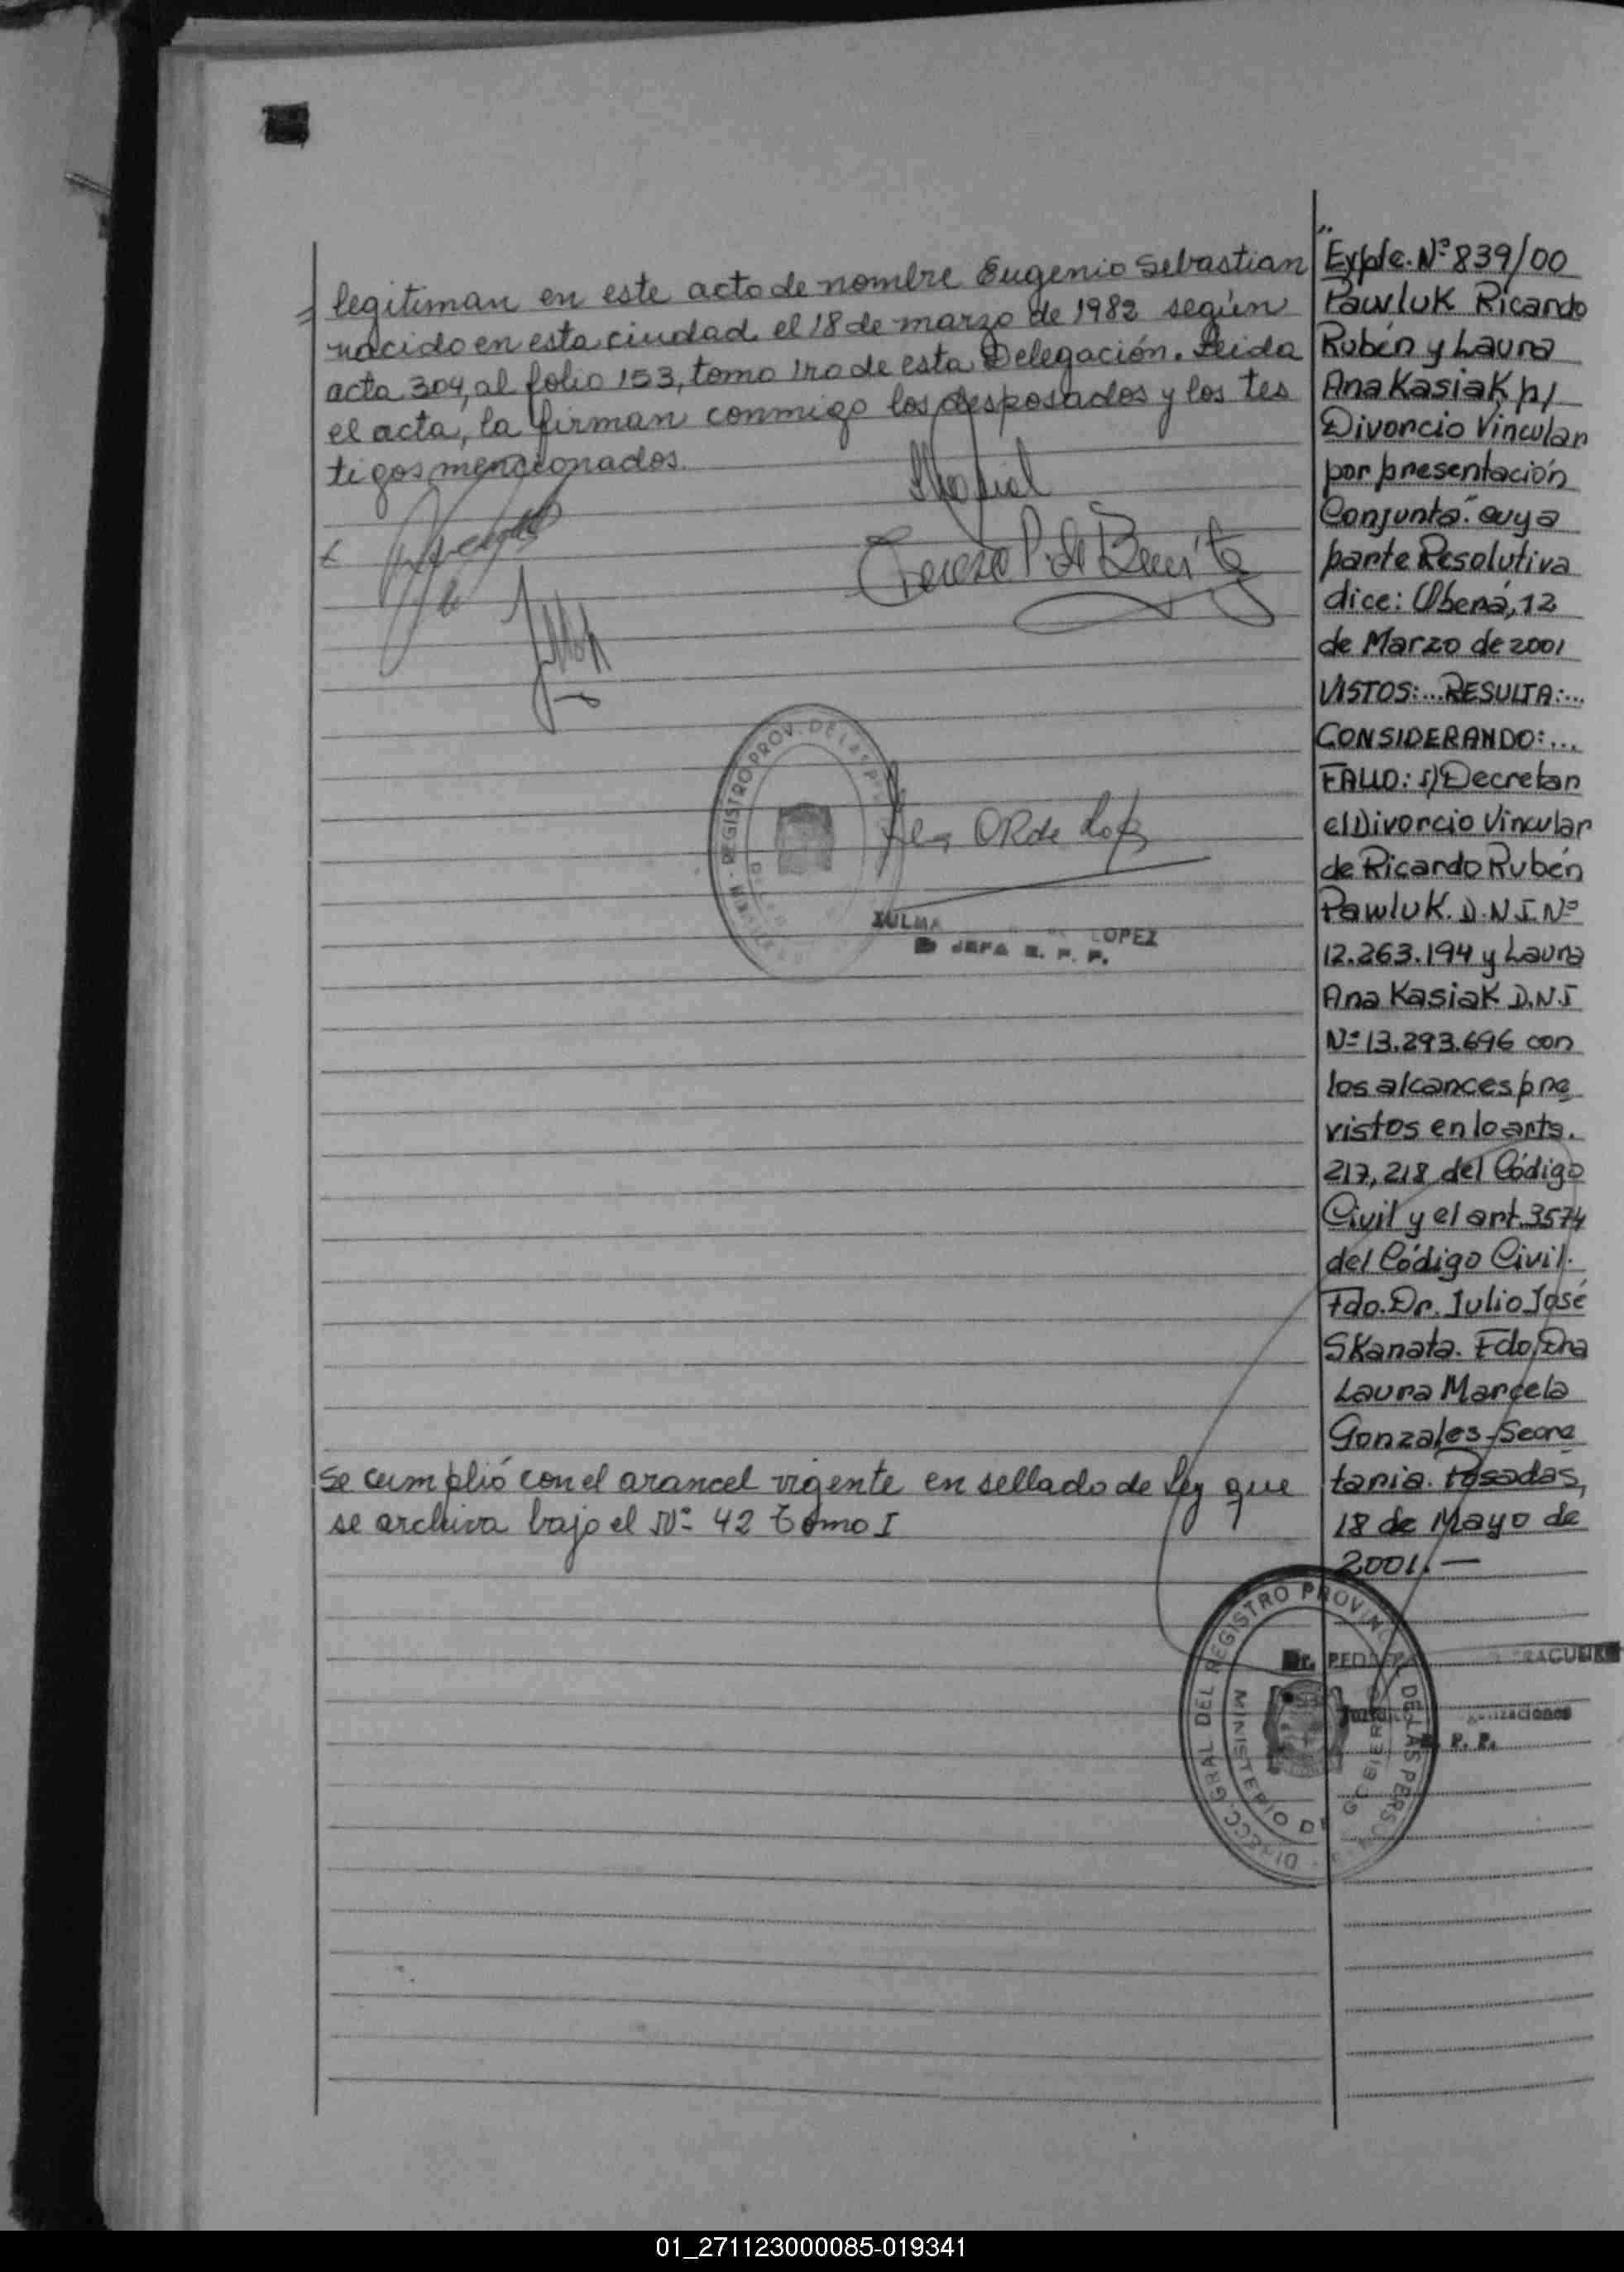 legitiman en este acto de nombre Eugenio Sebastian
nacido en esta ciudad el 18 de marzo de 1982 según
acta 304, al folio 153, tomo 1ro de esta Delegación. Leida
el acta, la firman conmigo los desposados y los tes
tigos mencionados.
Teresa P. de Benitez
REGISTRO PROV. DE LAS P
ZULMA LOPEZ
JEFA R. P. P.
Se cumplió con el arancel vigente en sellado de Ley que
se archiva bajo el Nº 42 Tomo I
Expte. Nº 839/00
Pawluk Ricardo
Rubén y Laura
Ana Kasiak p/
Divorcio Vincular
por presentación
Conjunta. cuya
parte Resolutiva
dice: Oberá, 12
de Marzo de 2001
VISTOS:...RESULTA:...
CONSIDERANDO:...
FALLO: 1) Decretar
el Divorcio Vincular
de Ricardo Rubén
Pawluk. D.N.I. Nº
12.263.194 y Laura
Ana Kasiak D.N.I
Nº 13.293.696 con
los alcances pre
vistos en lo arts.
217, 218 del Código
Civil y el art. 3574
del Código Civil.
Fdo. Dr. Julio José
Skanata. Fdo. Dra
Laura Marcela
Gonzales - Secre
taria. Posadas,
18 de Mayo de
2001. —
DIRECC. GRAL DEL REGISTRO PROVINC DE LAS PERSO
MINISTERIO DE GOBIERNO
Dr.
R. P. P.
01_271123000085-019341